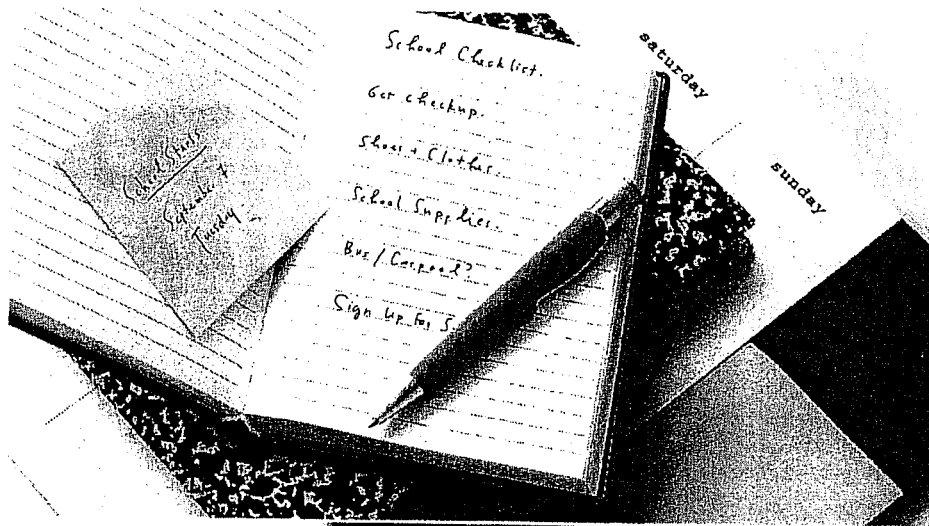 School Starts
September 7
Tuesday
School Checklist.
Get checkup.
Shoes + Clothes.
School Supplies.
Bus / Carpool?
Sign up for S
saturday
sunday